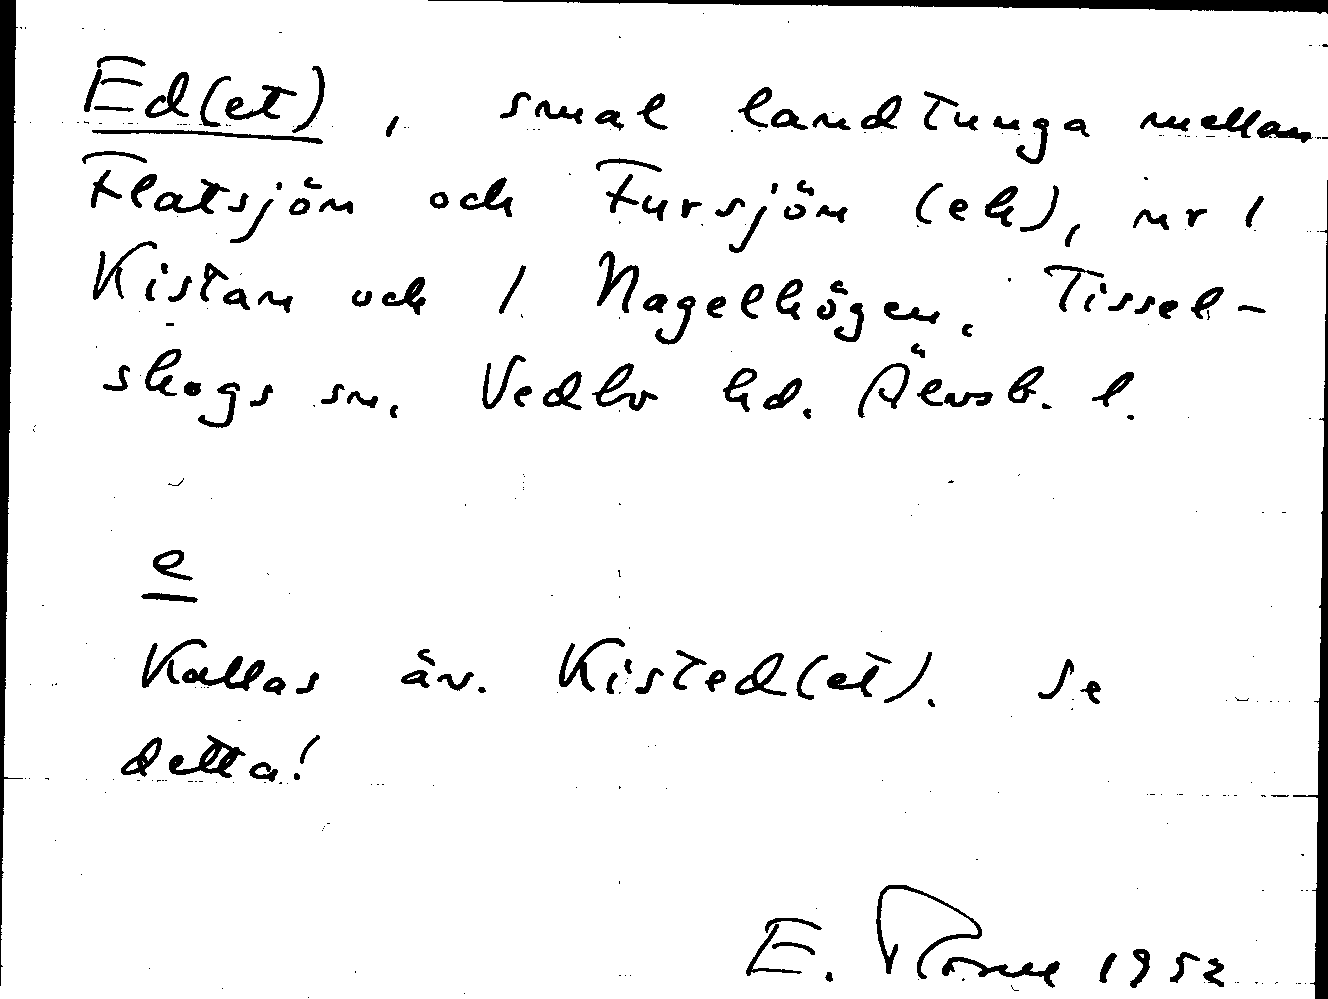 Ed(et), smal landtunga mellan
Flatsjön och Fursjön (ek), nr 1
Kistan och 1 Nagelhögen. Tissel-
skogs sn. Vedbo hd. Älvsb. l.
e
Kallas äv. Kisted(et). Se
detta!
E. 1952